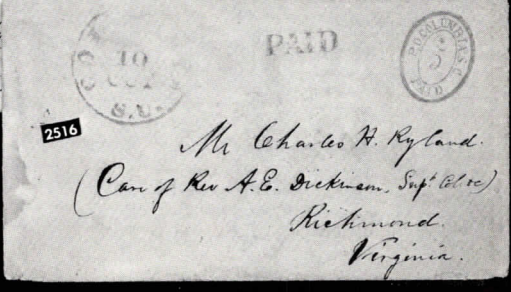 PAID
P.O. COLUMBIA S.C.
5
PAID
10
S.C.
2516
Mr Charles H. Ryland.
(Care of Rev A. E. Dickinson, Supt Col &c)
Richmond.
Virginia.